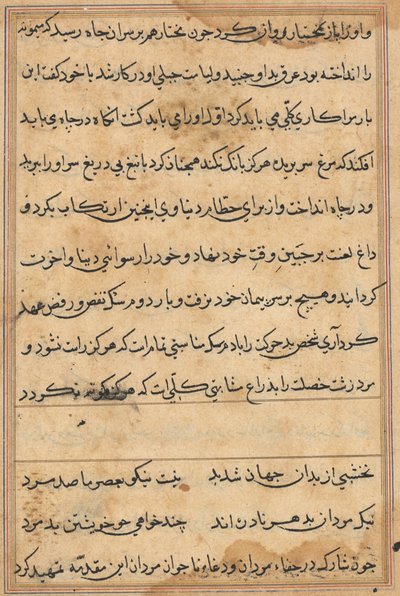 و او را باز بختیار روان کرد چون بختار هم بر سر آن چاه رسید که میمونه
را انداخته بود عرق بد او جنبید و لیاست جبلی او در کار شد با خود گفت این
بار مرا کاری کلی می باید کرد اول او را می باید کشت آنکاه در چاه می باید
افکند که مرغ سر بریده هرکز بانک نکند همچنان کرد با تیغ بی دریغ سر او را ببرید
و در چاه انداخت و از برای حطام دنیاوی اینچنین ارتکاب بکرد و
داغ لعنت بر جبین وقت خود نهاد و خود را رسوائی دنیا و آخرت
کردانید و هیچ بر سر پیمان خود نرفت و بار دوم نقض و رفض عهد
کرد آری شخص بد حرکت را با دم سک مناسبتی تمام است که هرکز راست نشود و
مرد زشت خصلت را بذراع مشابهتی کلی است که هرکز نکردد
نخشبی از بدان جهان شد بد نیت نیکو بعصر ما صد مرد
نیک مردان بدهر نادر اند چند خواهی تو خویشتن بد مرد
چون شارک در جفاء مردان و دغاء ناجوان مردان این مقدمه تمهید کرد